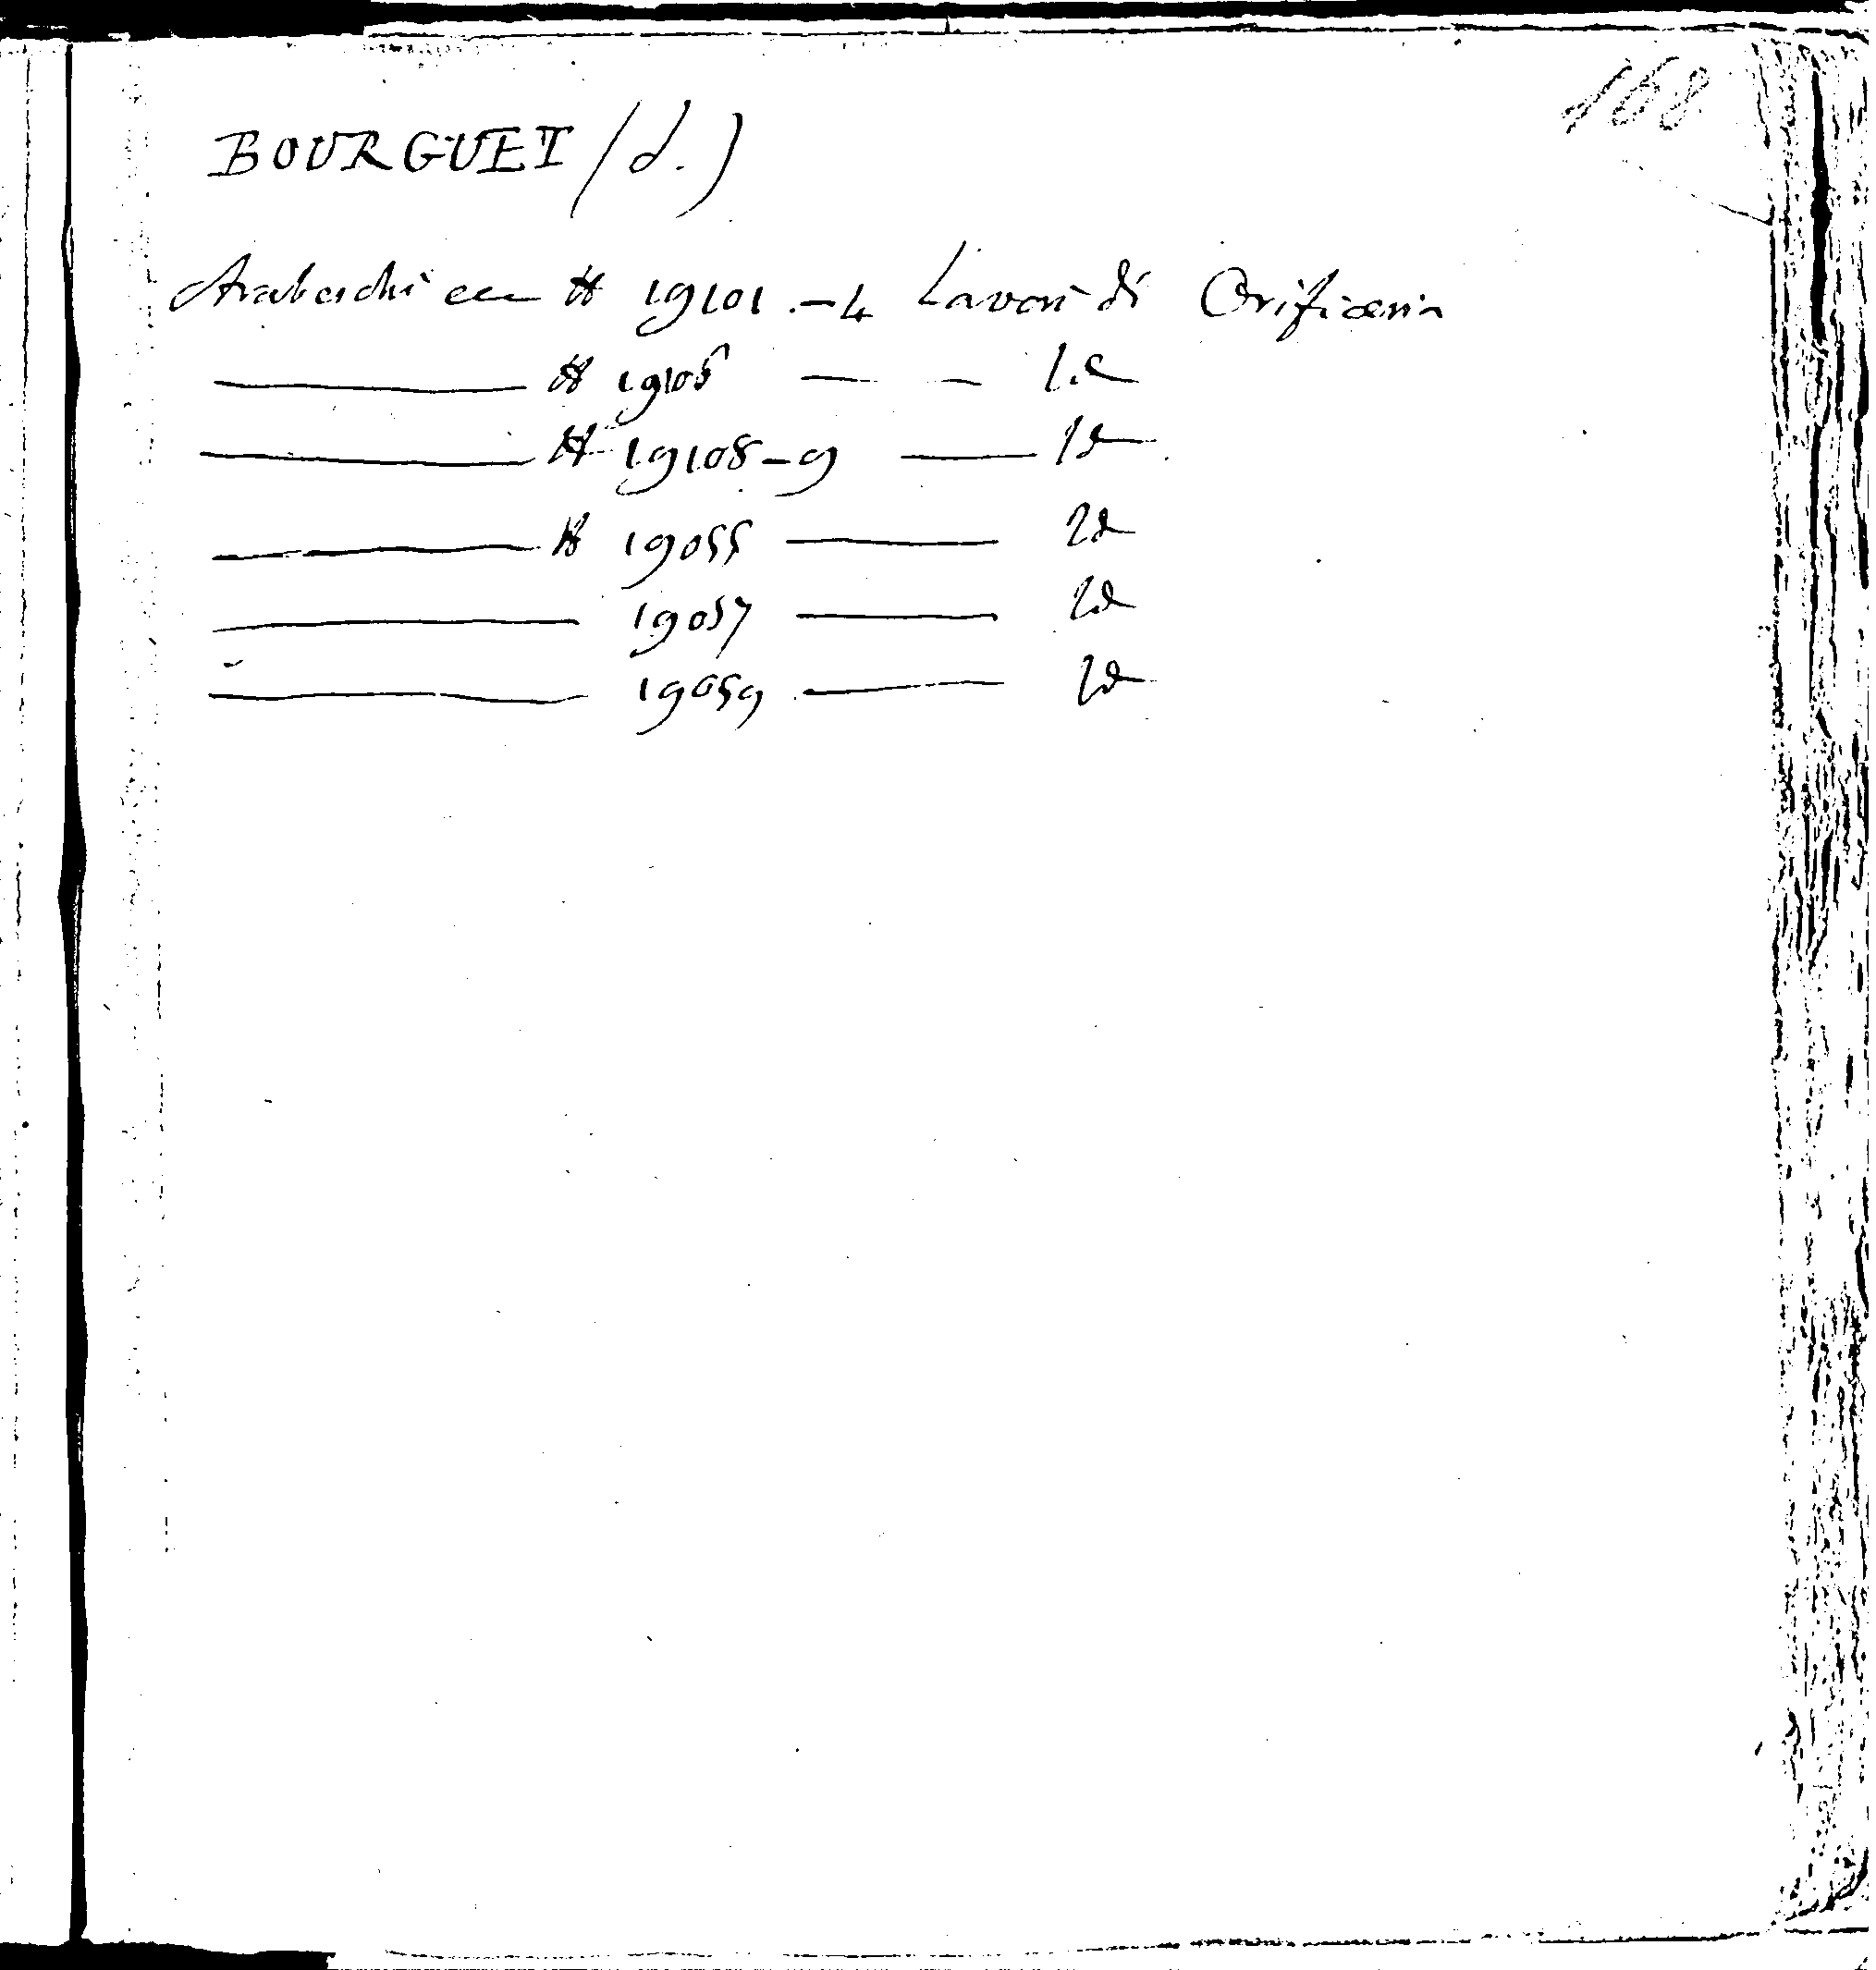 168
BOURGUET (J.)
Arabeschi ecc # 19101.-4 Lavori di Orificeria
——— # 19105 — — Id
——— # 19108-9 — Id
——— # 19055 — Id
——— 19057 — Id
——— 19059 — Id